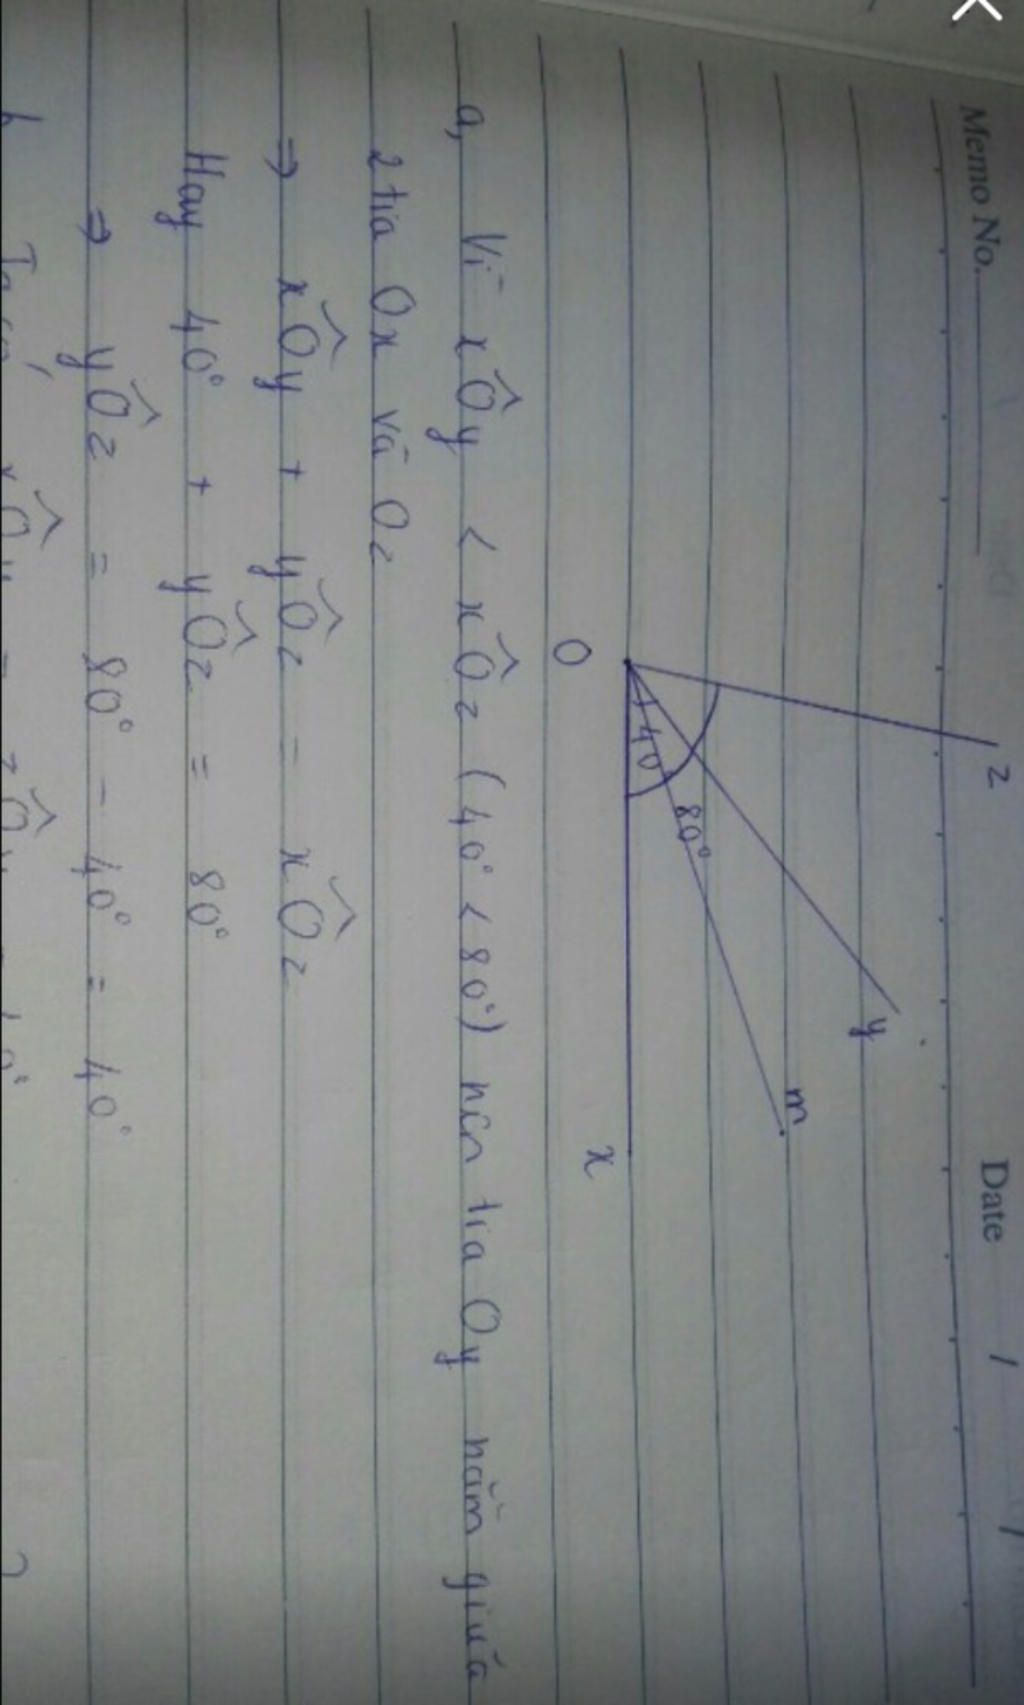 Memo No.
Date / /
z
y
m
80°
40°
O
x
a, Vì xÔy < xÔz (40° < 80°) nên tia Oy nằm giữa
2 tia Ox và Oz
⇒ xÔy + yÔz = xÔz
Hay 40° + yÔz = 80°
⇒ yÔz = 80° - 40° = 40°